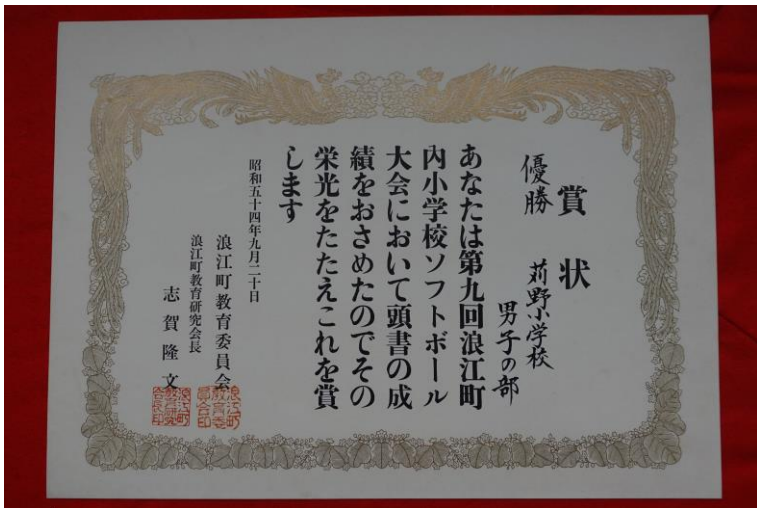 賞状
優勝 苅野小学校
男子の部
あなたは第九回浪江町
内小学校ソフトボール
大会において頭書の成
績をおさめたのでその
栄光をたたえこれを賞
します
昭和五十四年九月二十日
浪江町教育委員会
浪江町教育研究会長
志賀隆文